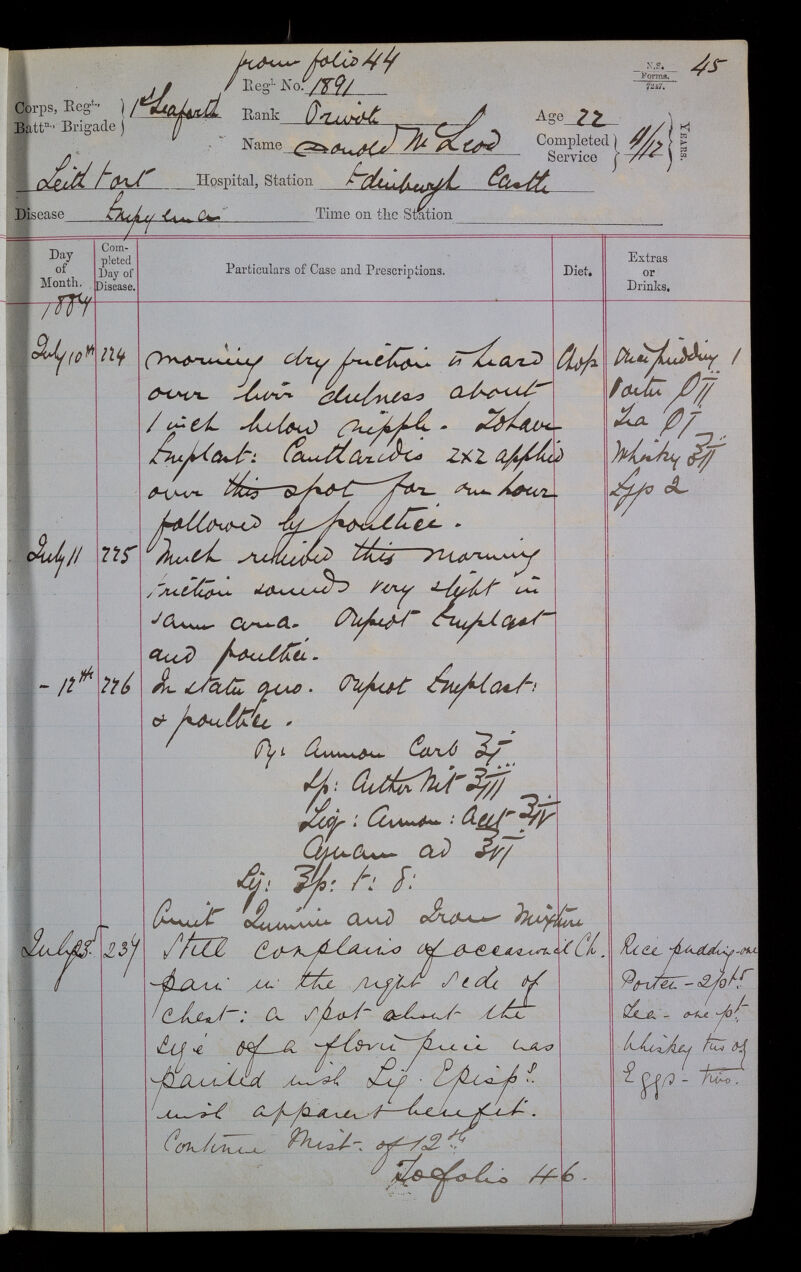 from folio 44
N.S. Forms. 7247. 45
Regl. No. 1891
Corps, Regt., Battn., Brigade } 1st Seaforth Rank Private Age 22
Name Donald McLeod Completed Service } 4/12 { YEARS.
Leith Fort Hospital, Station Edinburgh Castle
Disease Empyema Time on the Station
Day of Month. Completed Day of Disease. Particulars of Case and Prescriptions. Diet. Extras or Drinks.
1884
July 10th 224 morning dry friction is heard Chop Rice pudding 1
over liver dulness about Porter OII
1 inch below nipple. To have Tea OI
Emplast: Cantharidis 2x2 applied Whisky ℥II
over this spot for one hour Egg 2
followed by poultice.
July 11 225 Much relieved this morning
Friction sounds very slight in
same area. Repeat Emplast
and poultice.
- 12th 226 In statu quo. Repeat Emplast:
& poultice.
Ry: Ammon Carb ʒI
Sp: Aether Nit ʒIII
Liq: Ammon: Acet ℥IV
Aquam ad ℥VI
t:
Omit Quinine and Iron Mixture
July 23. 237 Still complains of occasional Ch. Rice pudding - one
pain in the right side of Porter - 2 pts.
chest: a spot about the Tea - one pt.
size of a florin piece was Whiskey two oz
painted with Liq. Episps. Eggs - two.
with apparent benefit.
Continue Mist. of 12th
To folio 46.